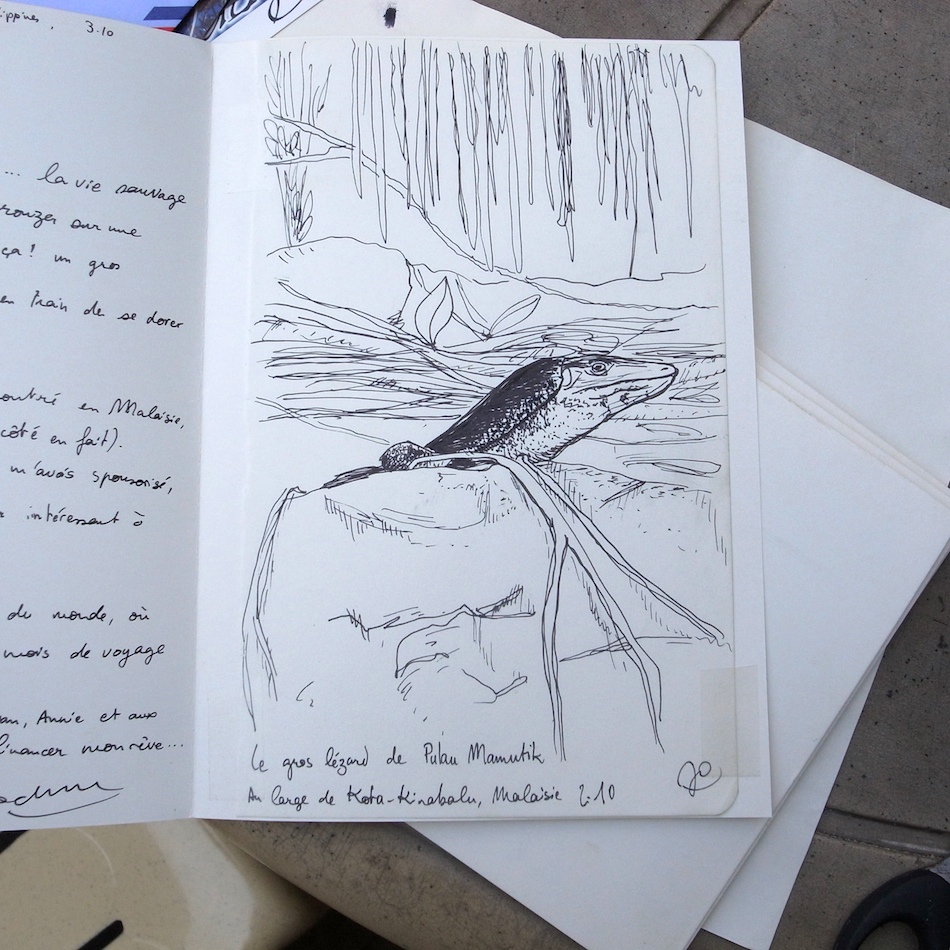 ippines, 3.10
... la vie sauvage
sur une
ça! un gros
en train de se dorer
en Malaisie,
côté en fait).
m'avais sponsorisé,
intéressant à
du monde, où
mois de voyage
Annie et aux
financer mon rêve...
Le gros lézard de Pulau Mamutik
Au large de Kota-Kinabalu, Malaisie 2.10